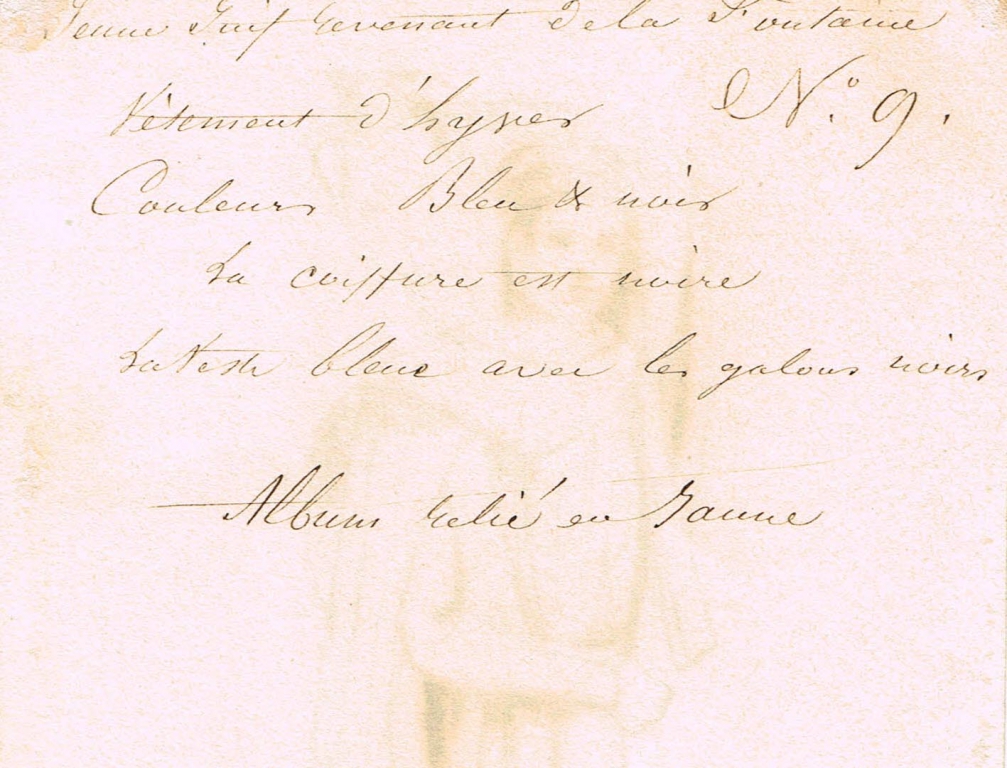 Jeune Juif revenant de la Fontaine
Vêtement d'hyver N.o 9.
Couleurs Bleu & noir
La coiffure est noire
La Veste bleue avec les galons noirs
Album relié en Jaune